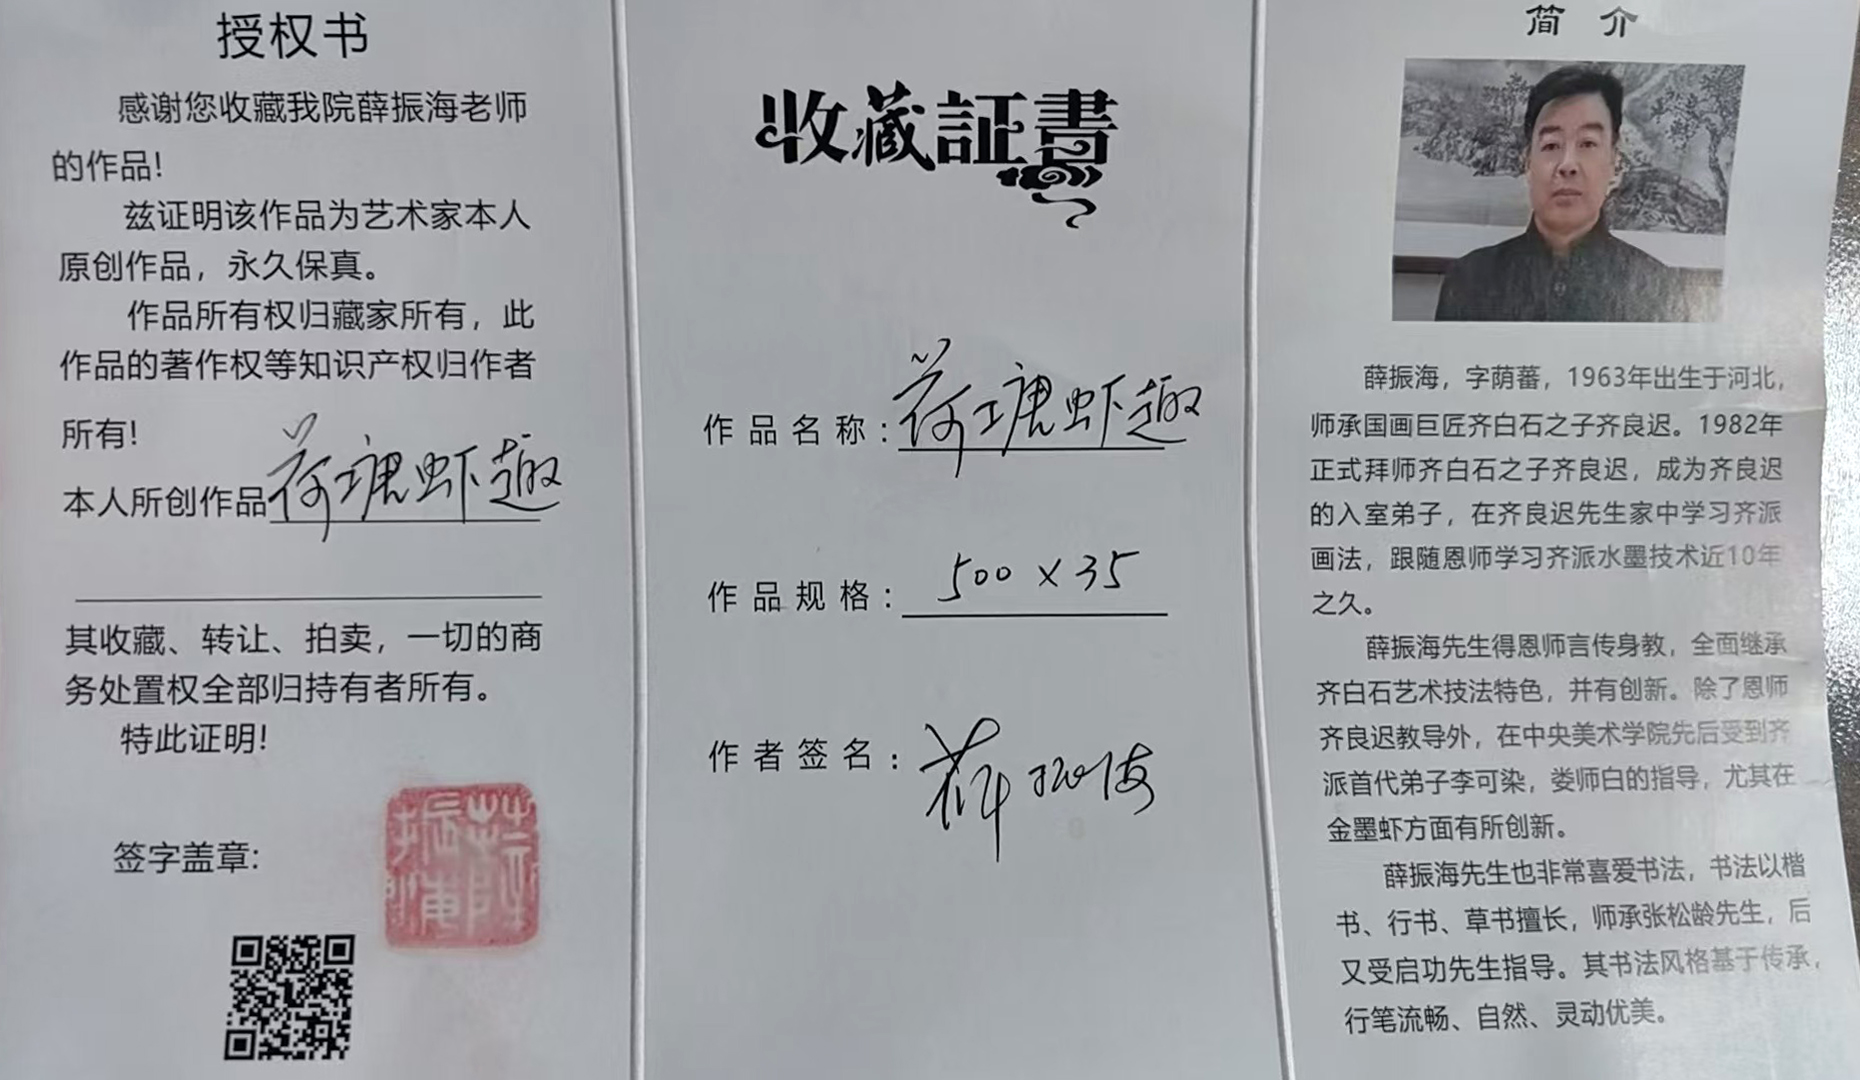 授权书
感谢您收藏我院薛振海老师
的作品!
兹证明该作品为艺术家本人
原创作品，永久保真。
作品所有权归藏家所有，此
作品的著作权等知识产权归作者
所有!
本人所创作品荷塘虾趣
其收藏、转让、拍卖，一切的商
务处置权全部归持有者所有。
特此证明!
签字盖章:
收藏証書
作品名称:荷塘虾趣
作品规格:500×35
作者签名:薛振海
简介
薛振海，字荫蕃，1963年出生于河北，
师承国画巨匠齐白石之子齐良迟。1982年
正式拜师齐白石之子齐良迟，成为齐良迟
的入室弟子，在齐良迟先生家中学习齐派
画法，跟随恩师学习齐派水墨技术近10年
之久。
薛振海先生得恩师言传身教，全面继承
齐白石艺术技法特色，并有创新。除了恩师
齐良迟教导外，在中央美术学院先后受到齐
派首代弟子李可染，娄师白的指导，尤其在
金墨虾方面有所创新。
薛振海先生也非常喜爱书法，书法以楷
书、行书、草书擅长，师承张松龄先生，后
又受启功先生指导。其书法风格基于传承，
行笔流畅、自然、灵动优美。